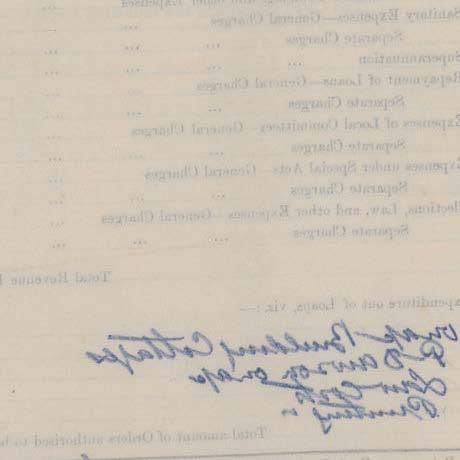 Sanitary Expenses—General Charges ... ...
Separate Charges ... ... ...
Superannuation ... ... ... ...
Repayment of Loans—General Charges ...
Separate Charges ... ... ...
Expenses of Local Committees—General Charges ...
Separate Charges ... ... ...
Expenses under Special Acts—General Charges ...
Separate Charges ... ... ...
Elections, Law, and other Expenses—General Charges ...
Separate Charges ... ... ...
Total Revenue
Expenditure out of Loans, viz.:—
Building Cottages
Law Costs
Printing
Total amount of Orders authorised to be